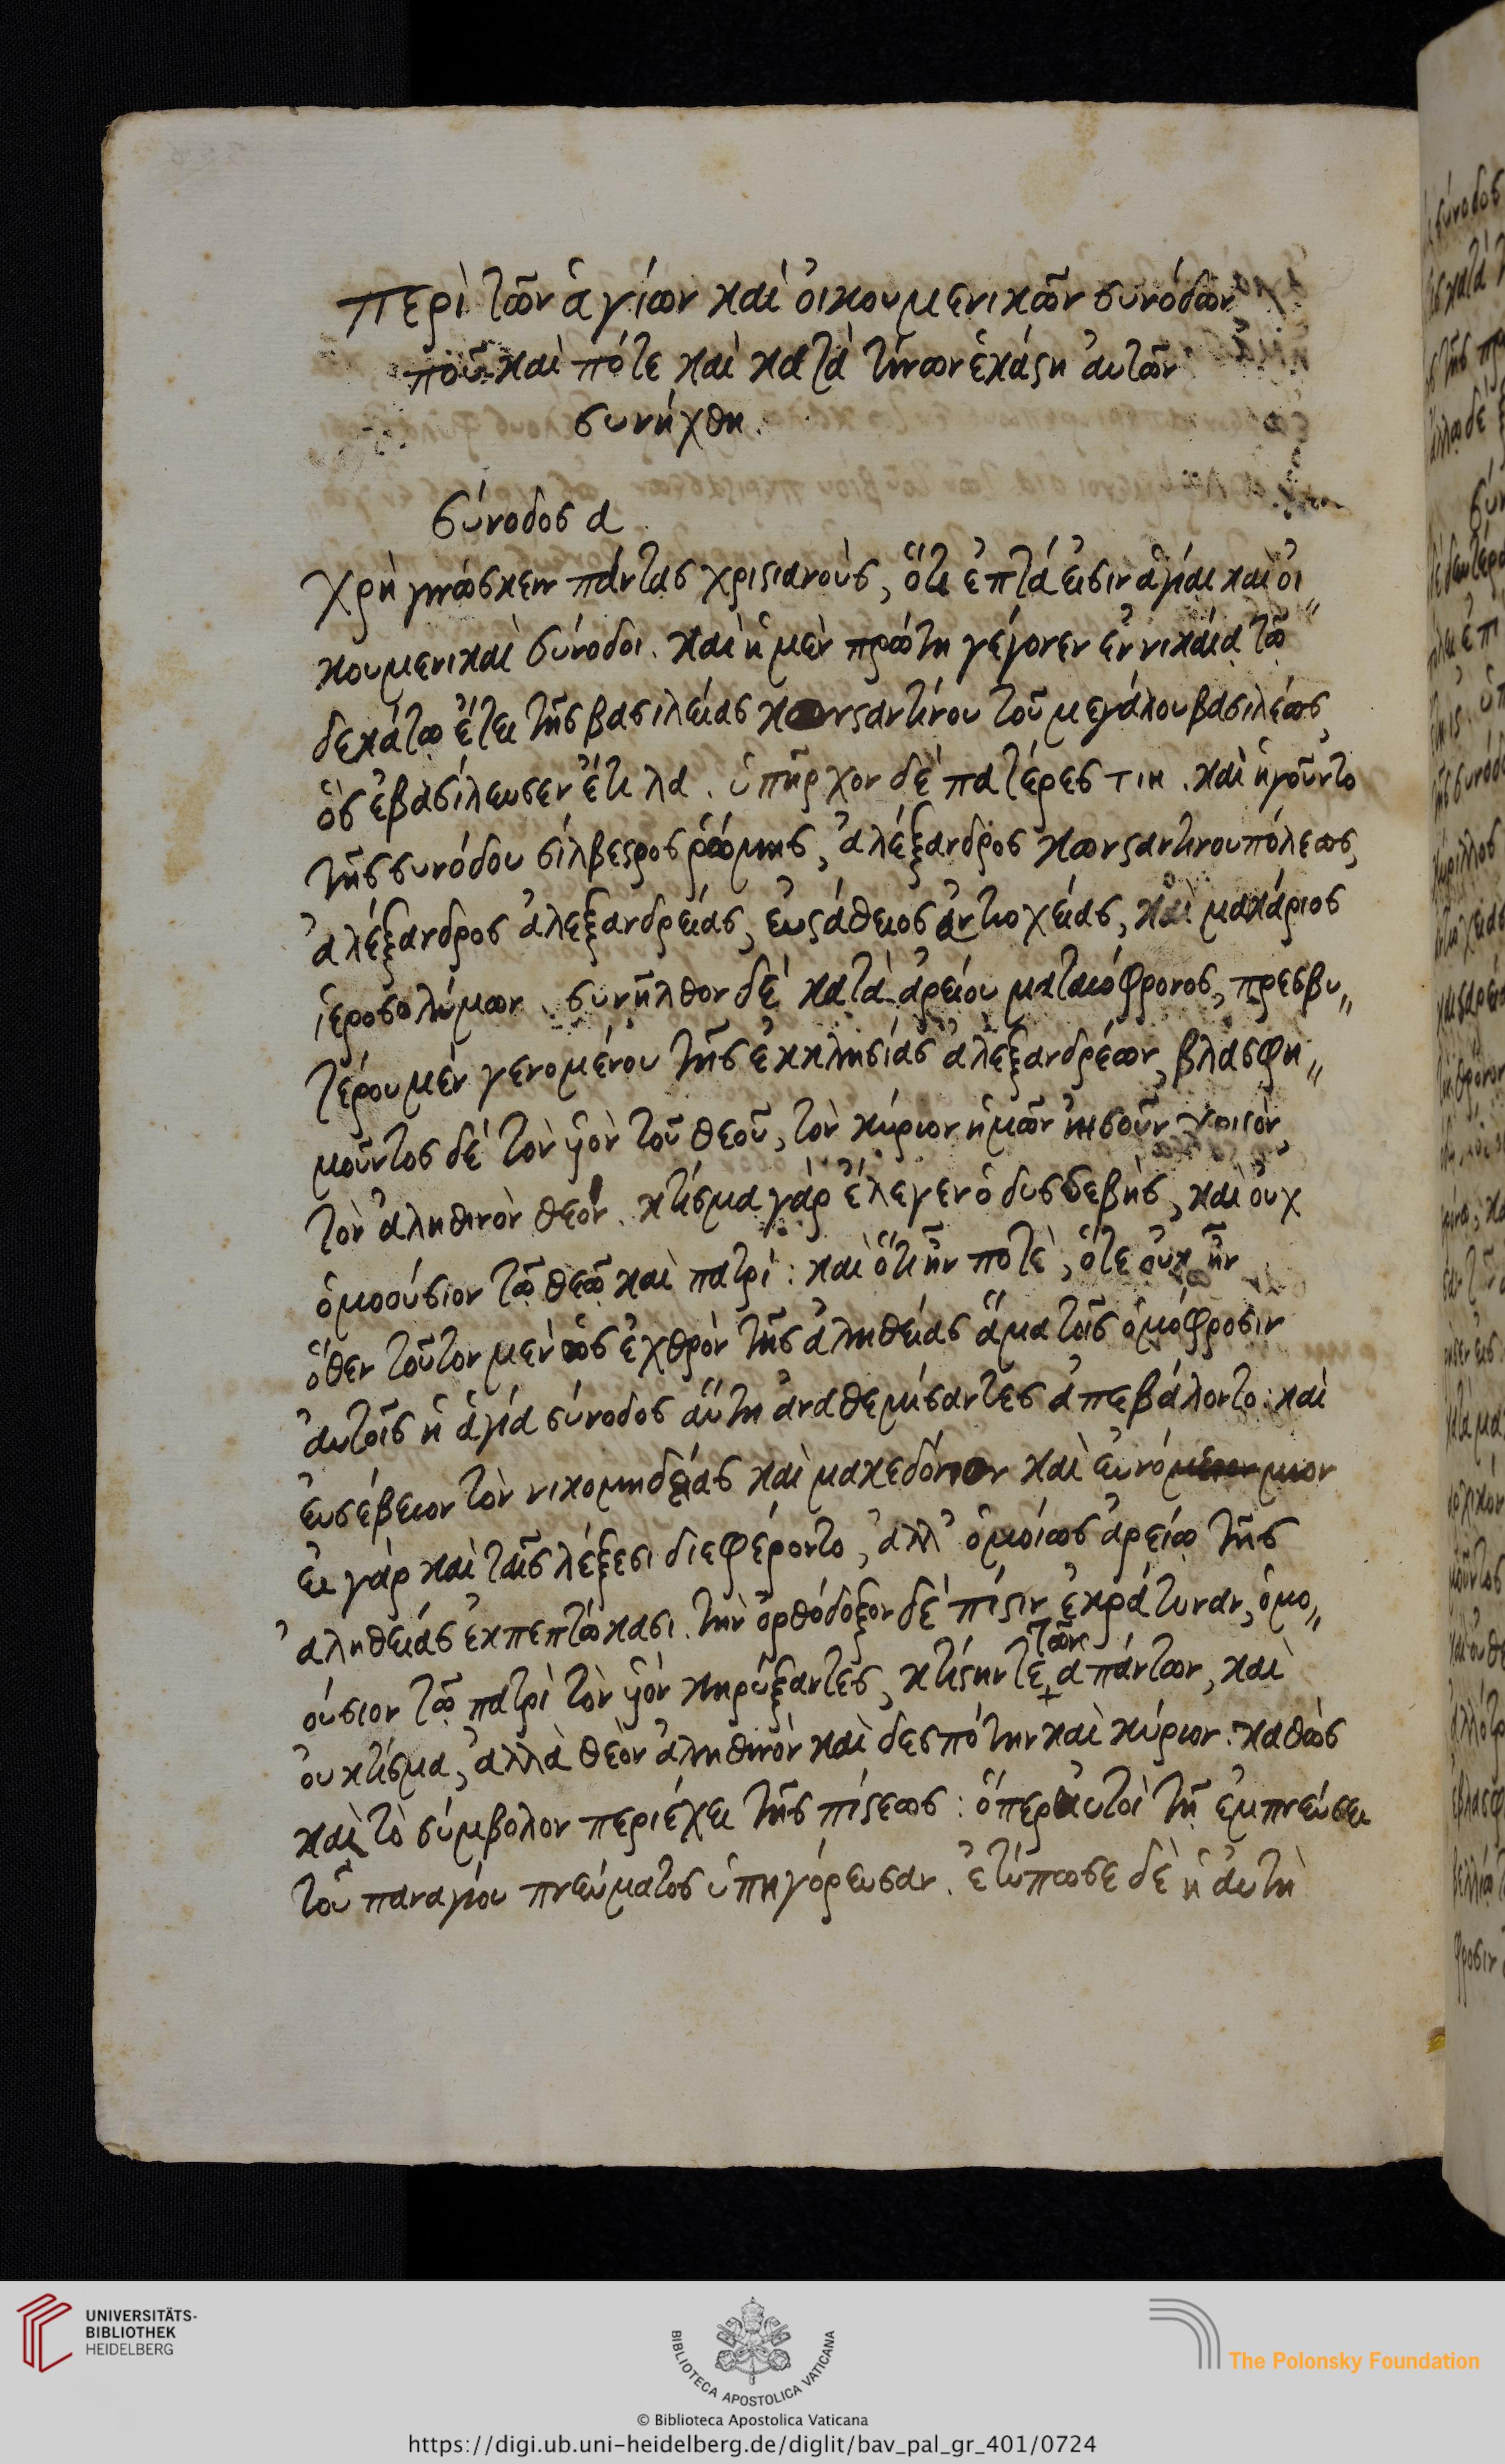 περὶ τῶν ἁγίων καὶ οἰκουμενικῶν συνόδων
ποῦ καὶ πότε καὶ κατὰ τίνων ἑκάϛη ἀυτῶν
συνήχθη.
σύνοδος α
χρὴ γινώσκειν πάντας χριϛιανοὺς, ὅτι ἑπτά ἐισιν ἁγίαι καὶ ὀι„
κουμενικαὶ σύνοδοι. καὶ ἡ μὲν πρώτη γέγονεν ἐν νικαία τῶ
δεκάτω ἔτει τῆς βασιλείας κωνϛαντίνου τοῦ μεγάλου βασιλέως,
ὃς ἐβασίλευσεν ἔτι λα. ὑπῆρχον δὲ πατέρες τιη. καὶ ἡγοῦντο
τῆς συνόδου σίλβεϛρος ῥώμης, ἀλέξανδρος κωνϛαντινουπόλεως,
ἀλέξανδρος ἀλεξανδρείας, ἐυϛάθειος ἀντιοχείας, καὶ μακάριος
ἱεροσολύμων. συνῆλθον δὲ κατὰ ἀρείου ματαιόφρονος, πρεσβυ„
τέρου μὲν γενομένου τῆς ἐκκλησίας ἀλεξανδρέων, βλασφη„
μοῦντος δὲ τὸν ὑὸν τοῦ θεοῦ, τὸν κύριον ἡμῶν ἰησοῦν χριϛὸν,
τὸν ἀληθινὸν θεόν. κτίσμα γὰρ ἔλεγεν ὁ δυσσεβὴς, καὶ ὀυχ
ὁμοούσιον τῶ θεῶ καὶ πατρί: καὶ ὅτι ἦν ποτὲ, ὅτε ὀυκ ἦν
ὅθεν τοῦτον μὲν ὡς ἐχθρὸν τῆς ἀληθείας ἅμα τοῖς ὁμόφροσιν
ἀυτοῖς ἡ ἁγία σύνοδος ἅυτη ἀναθεμίσαντες ἀπεβάλοντο: καὶ
ἐυσέβειον τὸν νικομηδείας καὶ μακεδόνιον καὶ ἐυνόμειον μιον
ἐι γὰρ καὶ ταῖς λέξεσι διεφέροντο, ἀλλ' ὁμοίως ἀρείω τῆς
ἀληθείας ἐκπεπτώκασι. τὴν ὀρθόδοξον δὲ πίϛιν ἐκράτυναν, ὁμο„
ούσιον τῶ πατρὶ τὸν ὑὸν κηρύξαντες, κτίϛην τὲ τῶν ἁπάντων, καὶ
ὀυ κτίσμα, ἀλλὰ θεὸν ἀληθινὸν καὶ δεσπότην καὶ κύριον: καθὼς
καὶ τὸ σύμβολον περιέχει τῆς πίϛεως: ὅπερ ἀυτοὶ τῆ ἐμπνεύσει
τοῦ παναγίου πνεύματος ὑπηγόρευσαν. ἐτύπωσε δὲ ἡ ἀυτὴ
UNIVERSITÄTS-
BIBLIOTHEK
HEIDELBERG
BIBLIOTECA APOSTOLICA VATICANA
The Polonsky Foundation
© Biblioteca Apostolica Vaticana
https://digi.ub.uni-heidelberg.de/diglit/bav_pal_gr_401/0724